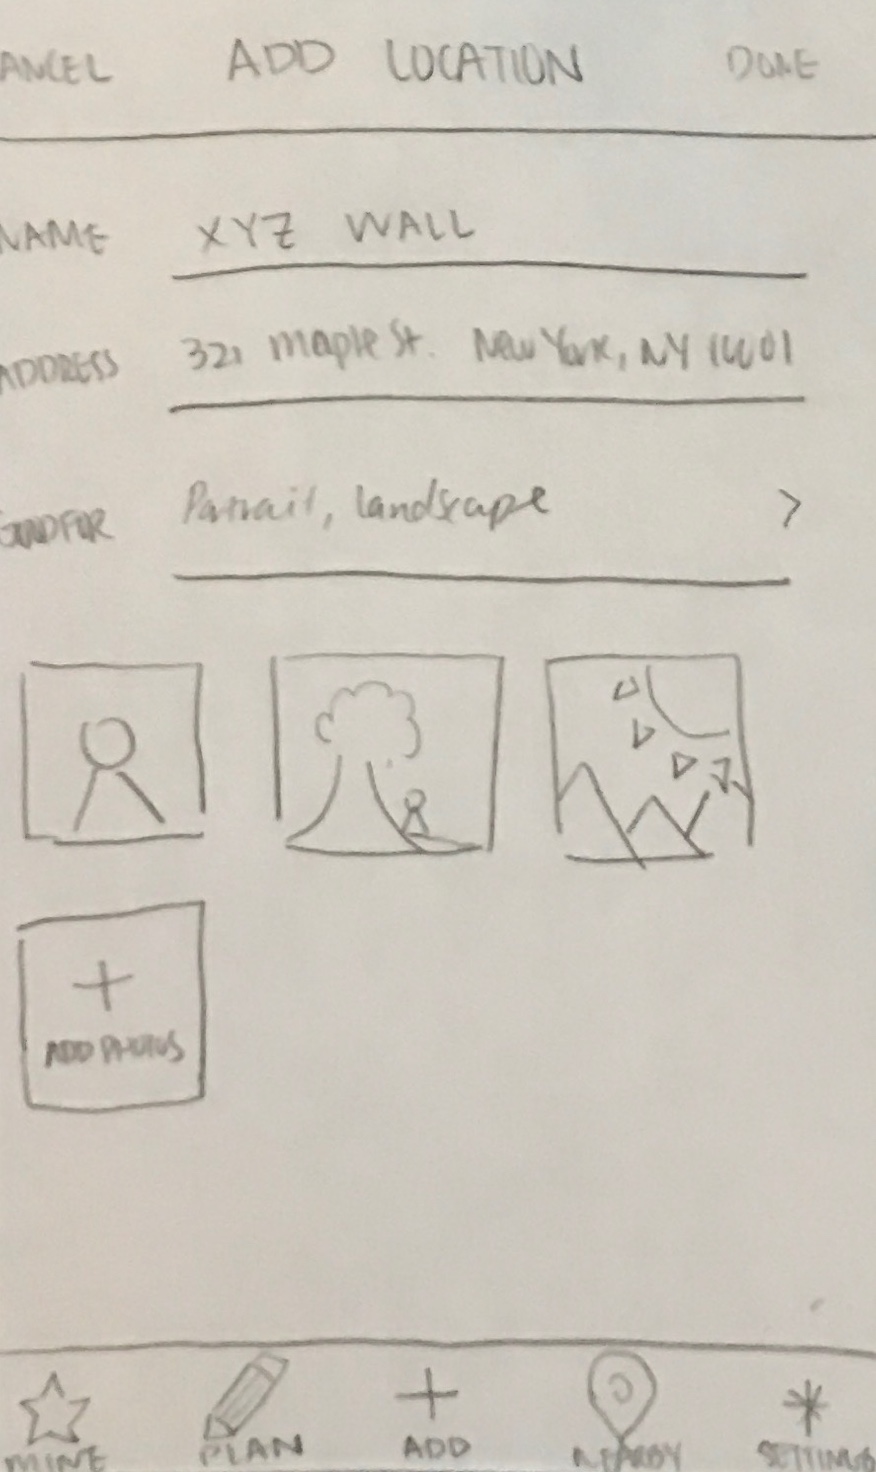 ANCEL ADD LOCATION DONE
NAME XYZ WALL
ADDRESS 321 maple St. New York, NY 10001
GOOD FOR Portrait, landscape >
+
ADD PHOTOS
+
MINE PLAN ADD NEARBY SETTINGS